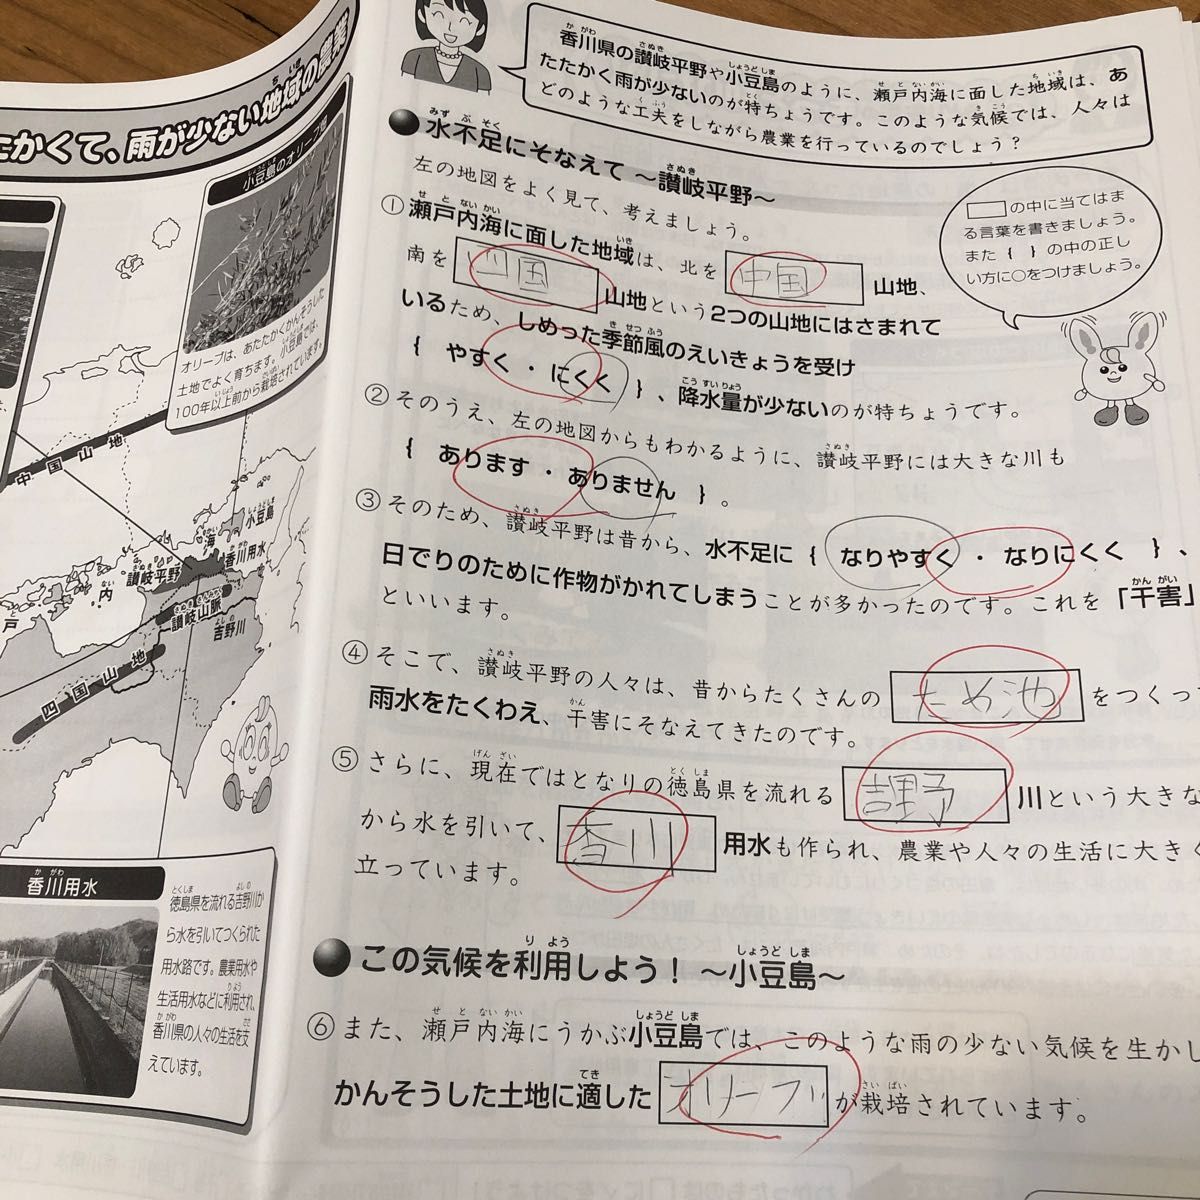 たかくて、雨が少ない地域の農業
ちいき
小豆島のオリーブ畑
オリーブは、あたたかくかんそうした
土地でよく育ちます。小豆島では、
100年以上前から栽培されています。
中国山地
小豆島
しょうどしま
海
かい
香川用水
讃岐平野
さぬき
内
ない
戸
讃岐山脈
さぬきさんみゃく
吉野川
よしの
四国山地
香川用水
かがわ
徳島県を流れる吉野川か
とくしま よしの
ら水を引いてつくられた
用水路です。農業用水や
生活用水などに利用され、
りよう
香川県の人々の生活を支
かがわ ささ
えています。
香川県の讃岐平野や小豆島のように、瀬戸内海に面した地域は、あ
かがわ さぬき しょうどしま せとないかい ちいき
たたかく雨が少ないのが特ちょうです。このような気候では、人々は
とく きこう
どのような工夫をしながら農業を行っているのでしょう?
くふう
●水不足にそなえて ~讃岐平野~
みずぶそく さぬき
左の地図をよく見て、考えましょう。
□の中に当てはま
る言葉を書きましょう。
また{ }の中の正し
い方に○をつけましょう。
① 瀬戸内海に面した地域は、北を 中国 山地、
せとないかい いき
南を 四国 山地という2つの山地にはさまれて
いるため、しめった季節風のえいきょうを受け
きせつふう
{ やすく・にくく }、降水量が少ないのが特ちょうです。
こうすいりょう
② そのうえ、左の地図からもわかるように、讃岐平野には大きな川も
さぬき
{ あります・ありません }。
③ そのため、讃岐平野は昔から、水不足に{ なりやすく・なりにくく }、
さぬき
日でりのために作物がかれてしまうことが多かったのです。これを「干害」
かんがい
といいます。
④ そこで、讃岐平野の人々は、昔からたくさんの ため池 をつくっ
さぬき
雨水をたくわえ、干害にそなえてきたのです。
かん
⑤ さらに、現在ではとなりの徳島県を流れる 吉野 川という大きな
げんざい とくしま
から水を引いて、 香川 用水も作られ、農業や人々の生活に大きく
立っています。
●この気候を利用しよう! ~小豆島~
りよう しょうどしま
⑥ また、瀬戸内海にうかぶ小豆島では、このような雨の少ない気候を生かし
せとないかい しょうどしま
かんそうした土地に適した オリーブ が栽培されています。
てき さいばい